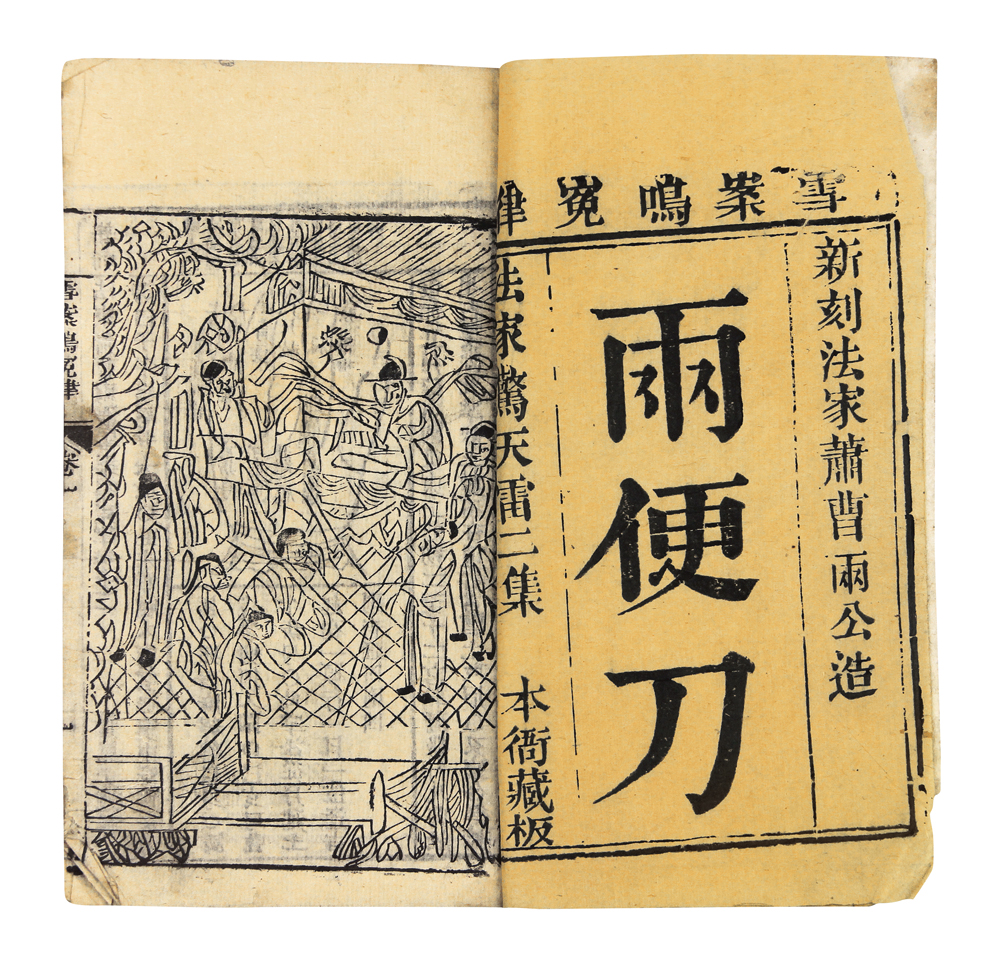 雪案鳴冤律
新刻法家蕭曹兩公造
兩便刀
法家驚天雷二集 本衙藏板
雪案鳴冤律 卷一